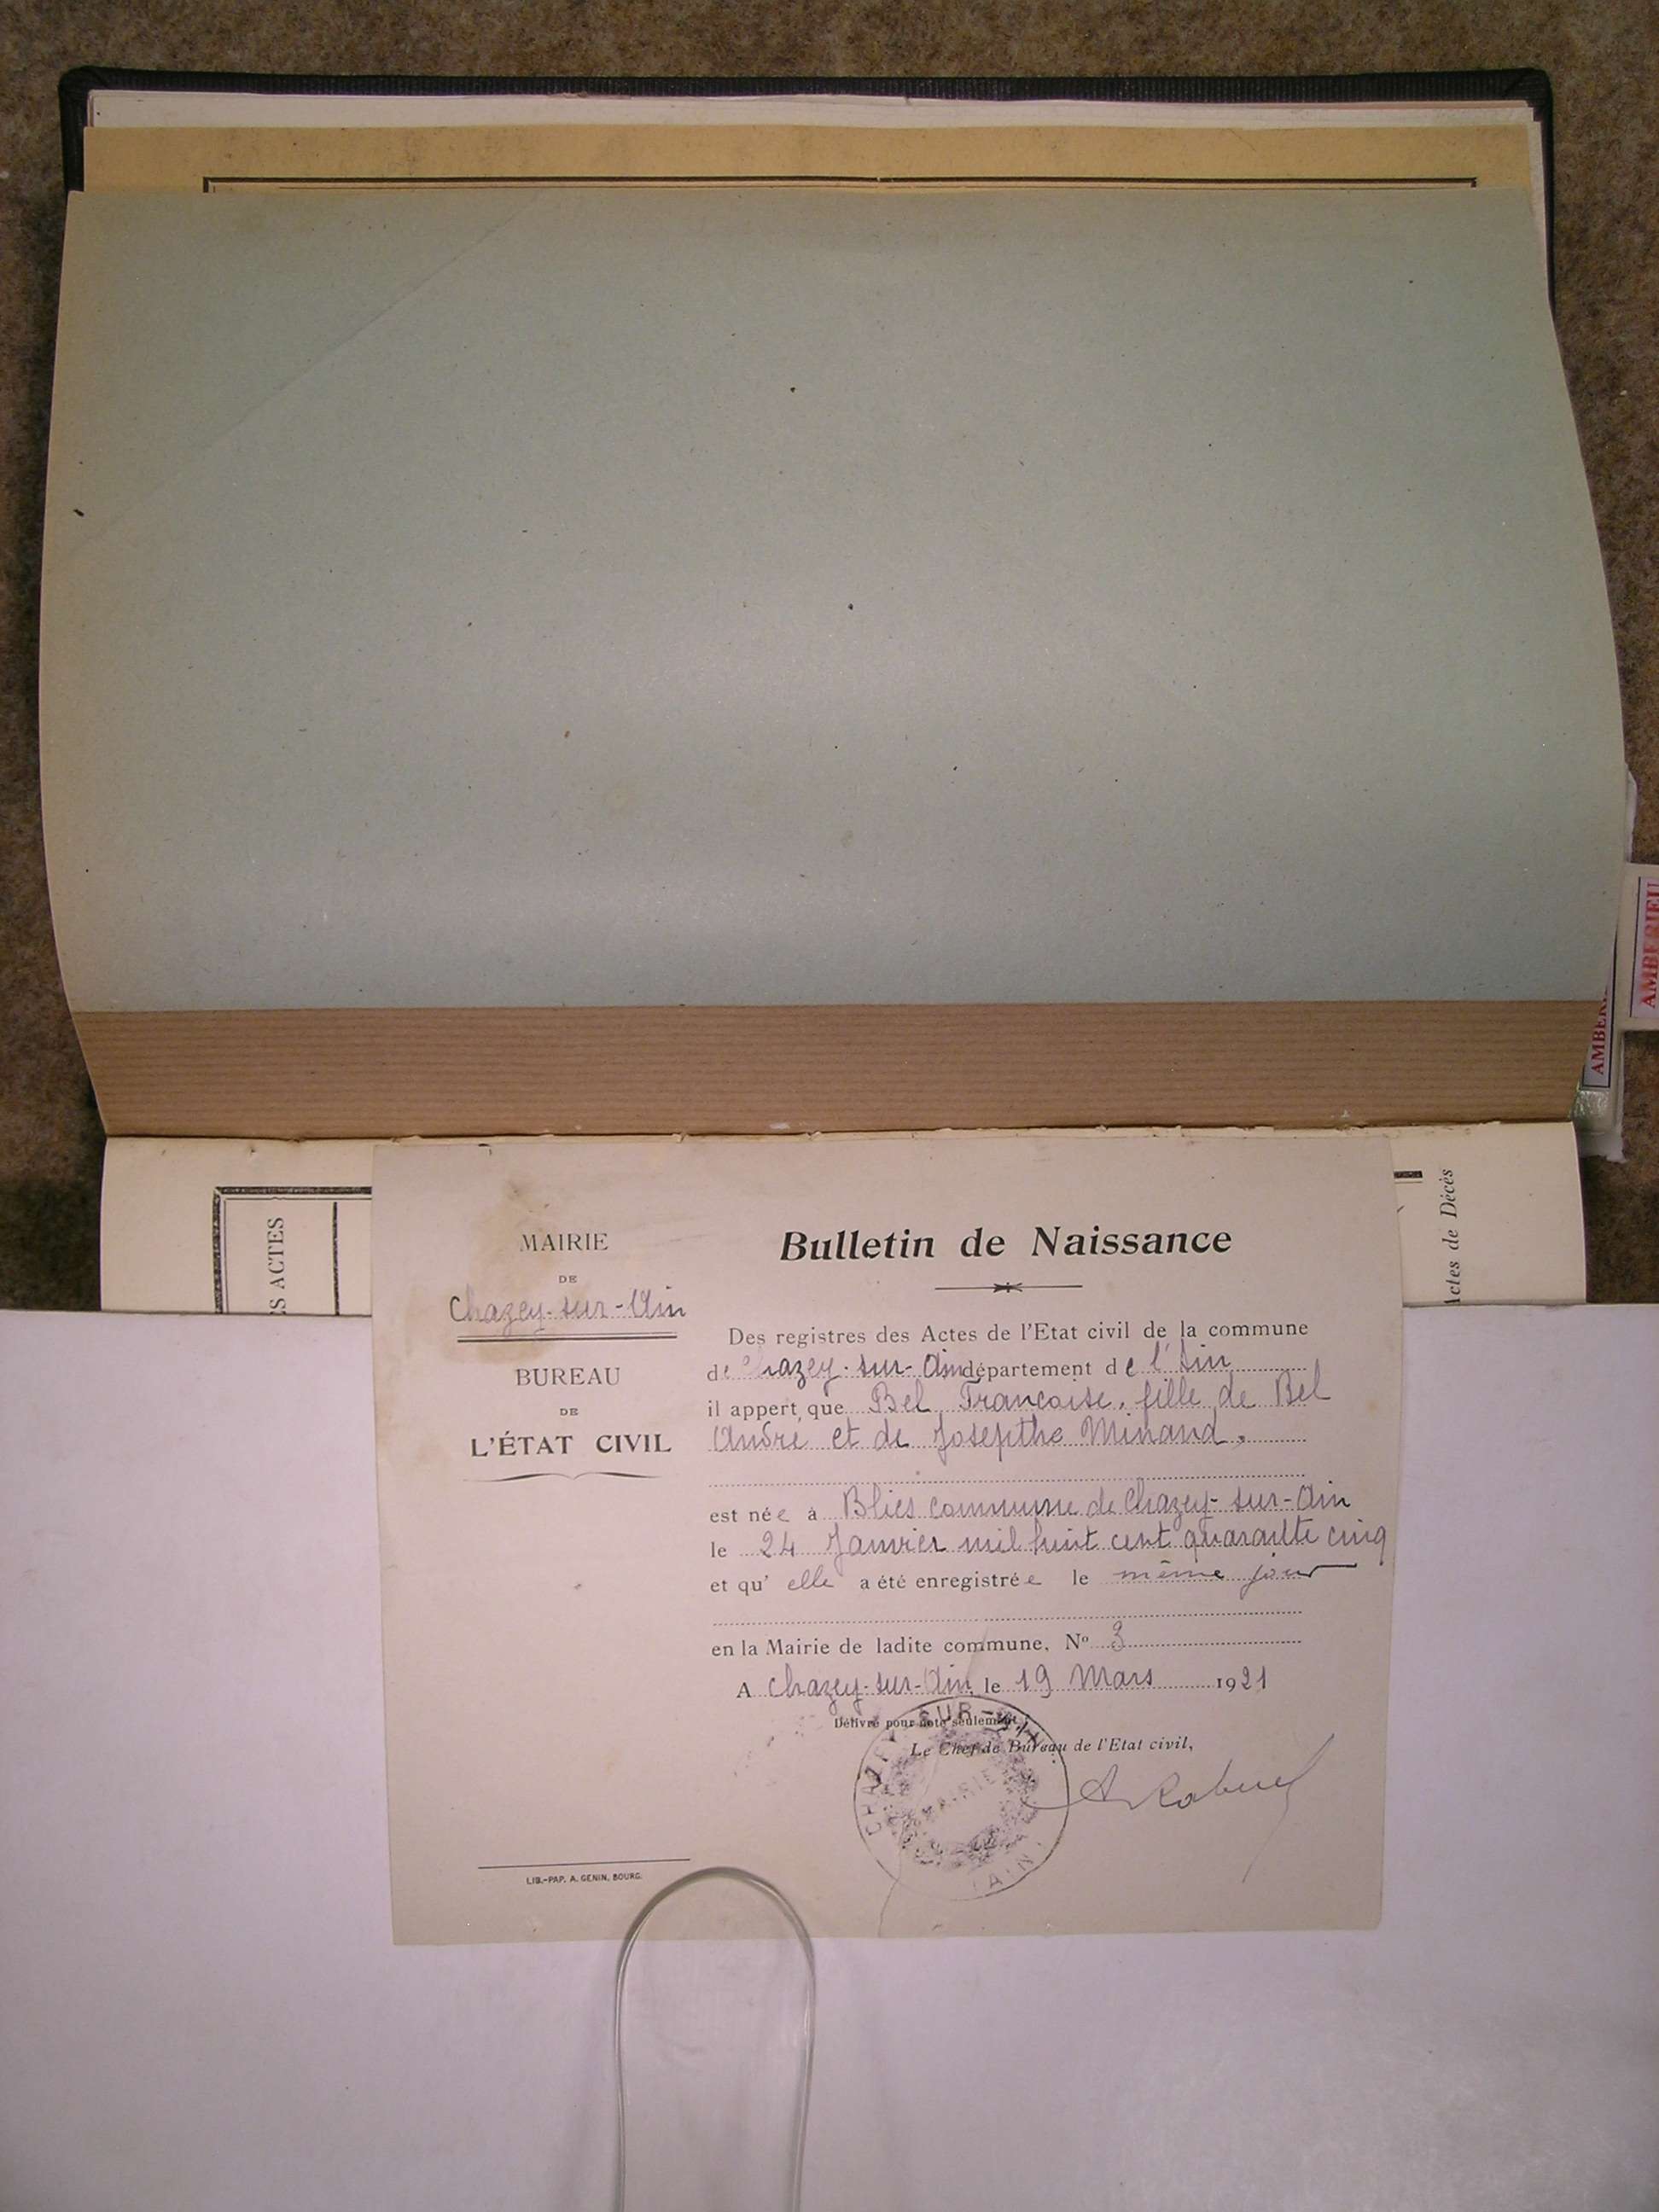 AMBERIEU
S ACTES
Actes de Décès
MAIRIE
DE
Chazey-sur-Ain
BUREAU
DE
L'ÉTAT CIVIL
Bulletin de Naissance
Des registres des Actes de l'Etat civil de la commune
de Chazey-sur-Ain département de l'Ain
il appert que Bel Françoise, fille de Bel
André et de Josepthe Minand.
est née à Blies commune de Chazey-sur-Ain
le 24 Janvier mil huit cent quarante cinq
et qu'elle a été enregistrée le même jour
en la Mairie de ladite commune, No 3
A Chazey-sur-Ain, le 19 Mars 1921
Délivré pour note seulement
Le Chef de Bureau de l'Etat civil,
A Rabuel
CHAZEY-SUR-AIN
MAIRIE
(AIN)
LIB.-PAP. A. GENIN, BOURG.